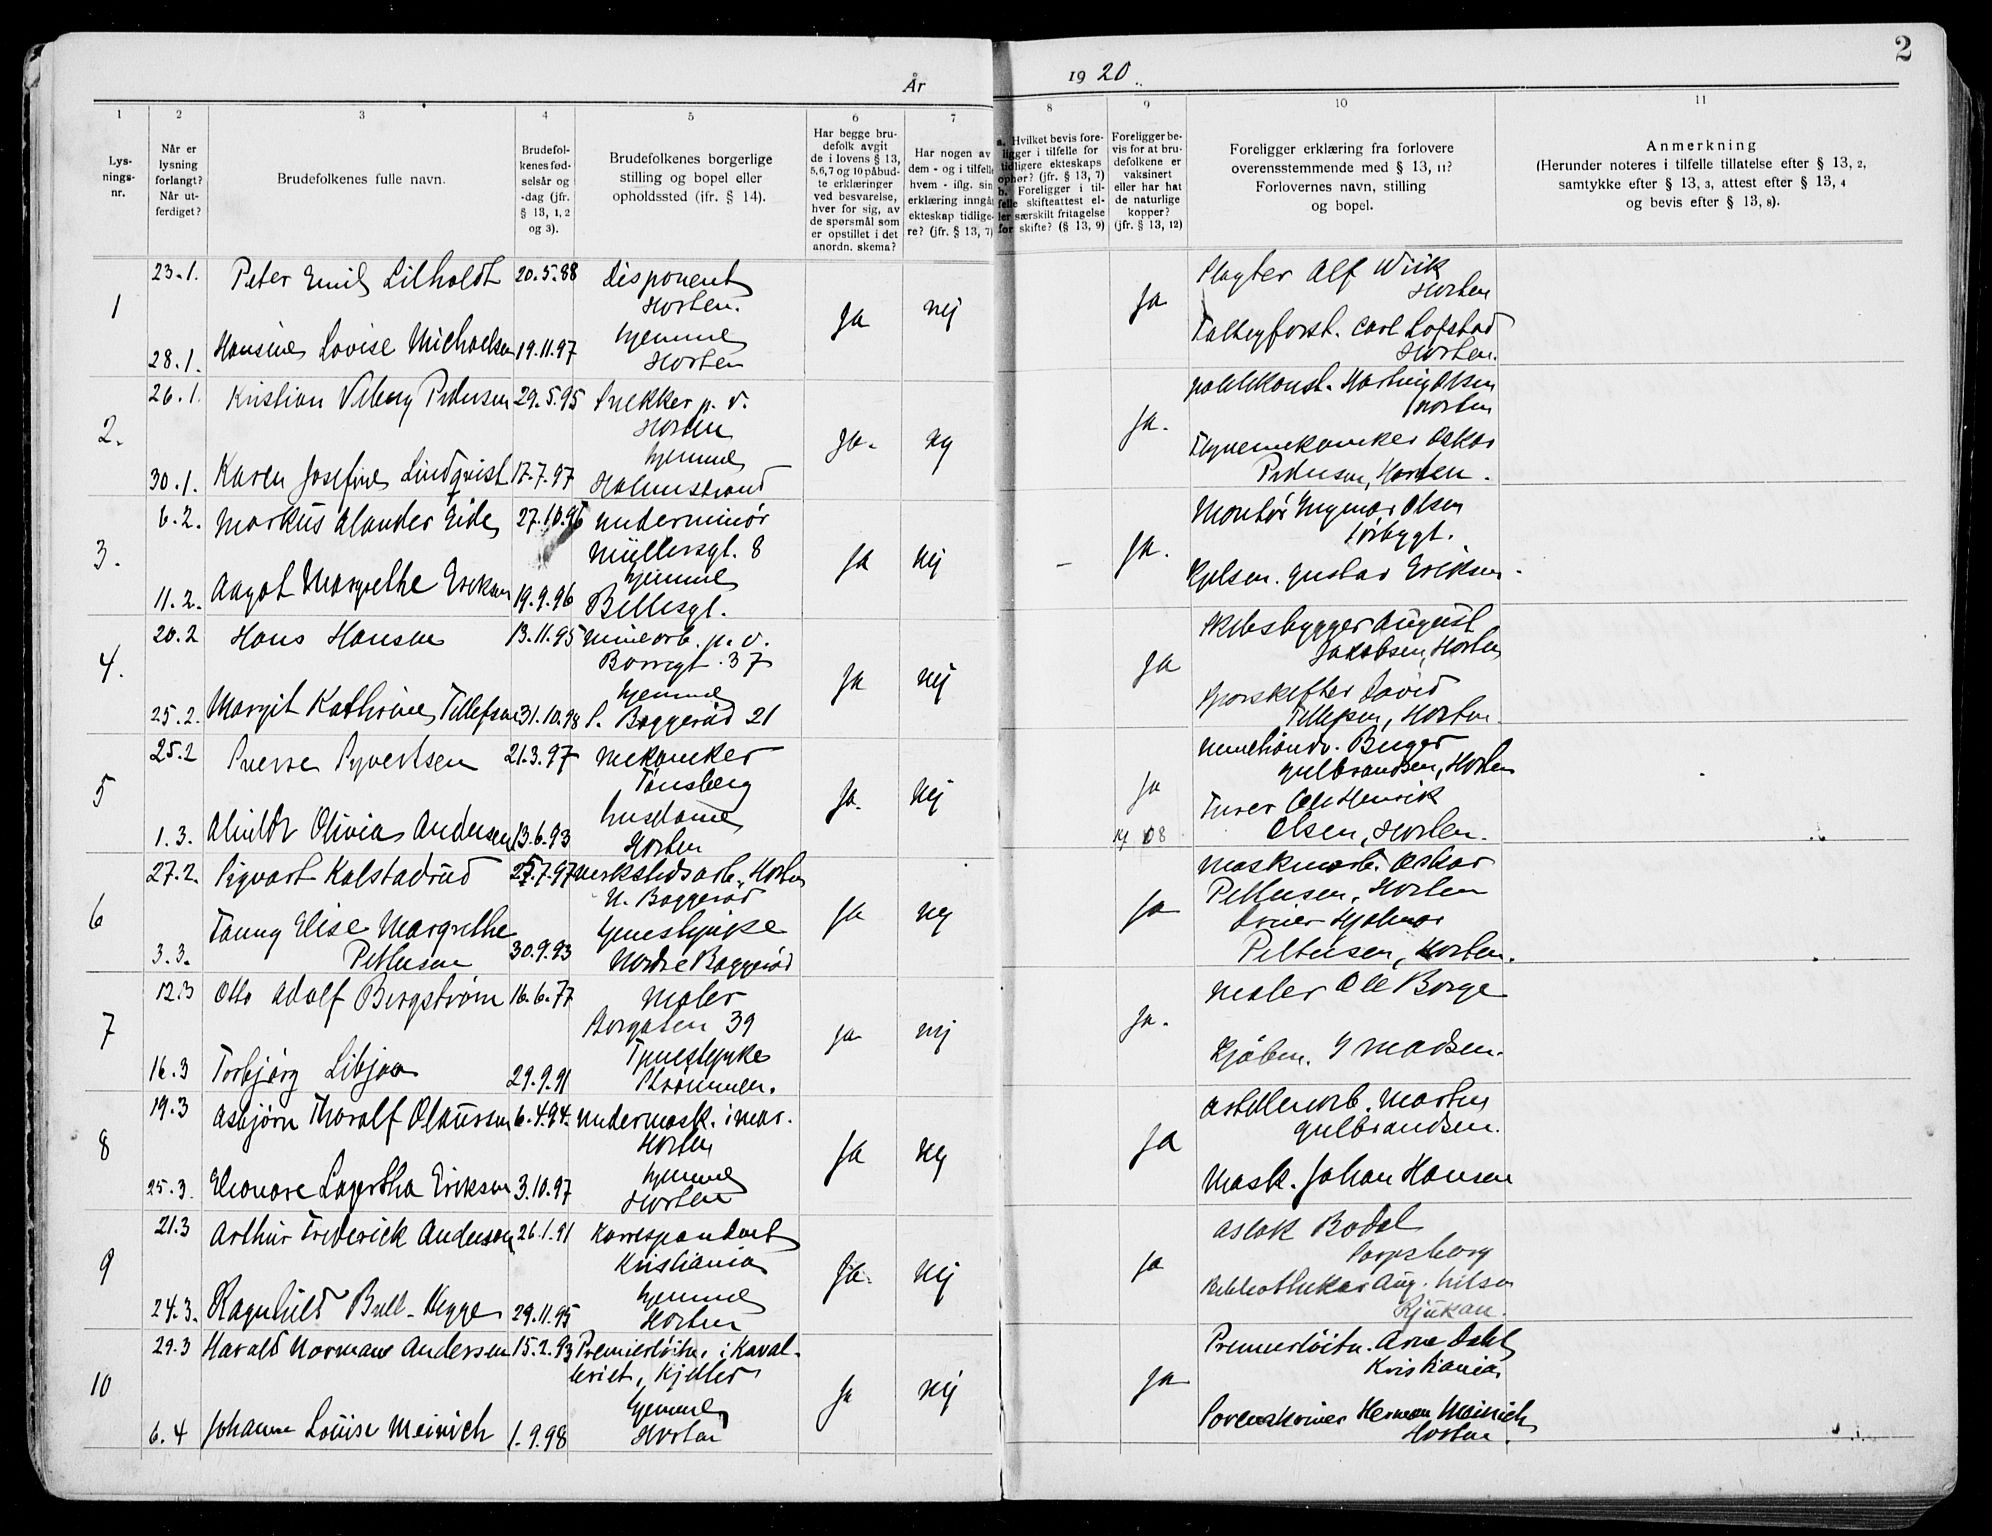 2
År
19 20.
1
2
3
4
5
6
7
8
9
10
11
Lys-
nings-
nr.
Når er
lysning
forlangt?
Når ut-
ferdiget?
Brudefolkenes fulle navn.
Brudefol-
kenes fød-
selsår og
-dag (jfr.
§ 13, 1, 2
og 3).
Brudefolkenes borgerlige
stilling og bopel eller
opholdssted (ifr. § 14).
Har begge bru-
defolk avgit
de i lovens § 13,
5,6,7 og 10 påbud-
te erklæringer
ved besvarelse,
hver for sig, av
de spørsmål som
er opstillet i det
anordn. skema?
Har nogen av
dem - og i tilfelle
hvem - iflg. sin
erklæring inngå
ekteskap tidlige-
re? (jfr. § 13, 7)
a. Hvilket bevis fore-
ligger i tilfelle for
tidligere ekteskaps
ophør? (jfr. § 13, 7)
b. Foreligger i til-
felle skifteattest el-
ler særskilt fritagelse
for skifte? (§ 13, 9)
Foreligger be-
vis for at bru-
defolkene er
vaksinert
eller har hat
de naturlige
kopper?
(jfr. § 13, 12)
Foreligger erklæring fra forlovere
overensstemmende med § 13, 11?
Forlovernes navn, stilling
og bopel.
Anmerkning
(Herunder noteres i tilfelle tillatelse efter § 13, 2,
samtykke efter § 13, 3, attest efter § 13, 4
og bevis efter § 13, 8).
1
23.1.
Peter Emil Lilholdt 20.5.88 Disponent
Horten.
Ja nej Ja
Slagter Alf Wiik
Horten
28.1.
Hansine Lovise Michaelsen 19.11.97 hjemme
Horten
Carl Lofstad
Horten.
2.
26.1.
Kristian Viberg Pedersen 29.5.95 Snekker p. v.
Horten
Ja. nej Ja.
Hartvig Olsen
Horten
30.1.
Karen Josefine Lindqvist 17.7.97 hjemme
Holmestrand
Oskar
Pedersen, Horten.
3.
6.2.
Markus Alander Eide 27.10.96 underminør
Müllersgt. 8
Ja nej - Ja.
Montør Ingmar Olsen
Sørbygt.
11.2.
Aagot Margrethe Eriksen 19.9.96 hjemme
Billesgt.
Gustav Eriksen.
4.
20.2
Hans Hansen 13.11.95 minearb. p. v.
Borregt. 37
Ja nej Ja
Skibsbygger August
Jakobsen, Horten
25.2.
Margit Kathrine Tellefsen 31.10.98 hjemme
S. Baggerød 21
Sporskifter David
Tellefsen, Horten.
5
25.2
Sverre Syvertsen 21.3.97 mekaniker
Tønsberg
Ja. nej Ja
minehåndv. Birger
Gulbrandsen, Horten
1.3.
Alvilde Olivia Andersen 13.6.93 husdame
Horten
08
Ole Henrik
Olsen, Horten.
6
27.2.
Sigvart Kalstadrud 25.7.97 verkstedsarb., Horten
N. Baggerød
Ja nej Ja
maskinarb. Oskar
Pettersen, Horten
3.3.
Fanny Elise Margrethe
Pettersen
30.9.93 tjenestepike
Nordre Baggerød
Hjalmar
Pettersen, Horten.
7
12.3
Otto Adolf Bergstrøm 16.6.77 Maler
Storgaten 39
Ja nej Ja.
Maler Ole Borge
16.3
Torbjørg 29.9.91 Tjenestepike
Strømmen.
Kjøbm. Madsen.
8
19.3
Asbjørn Thoralf Olaussen 6.4.94. undermask. i mar.
Horten
Ja nej Ja
Artilleriarb. Martin
Gulbrandsen.
25.3.
Eleonore Lagertha Eriksen 3.10.97 hjemme
Horten
Mask. Johan Hansen
9
21.3
Arthur Frederick Anderson 26.1.91 Korrespondent
Kristiania
Ja. nej Ja
Aslak Bodal
Sarpsborg
24.3.
Ragnhild Bull-Hegge 29.11.95 hjemme
Horten
Bibliothekar Aug. Nilsen
Rjukan.
10
29.3
Harald Normann Andersen 15.2.93 Premierløitn. i Kaval-
leriet, Kjeller
Ja nej Ja
Premierløitn. Arne Dahl
Kristiania
6.4
Johanne Louise Meinich 1.9.98 hjemme
Horten
Sorenskriver Herman Meinich
Horten.